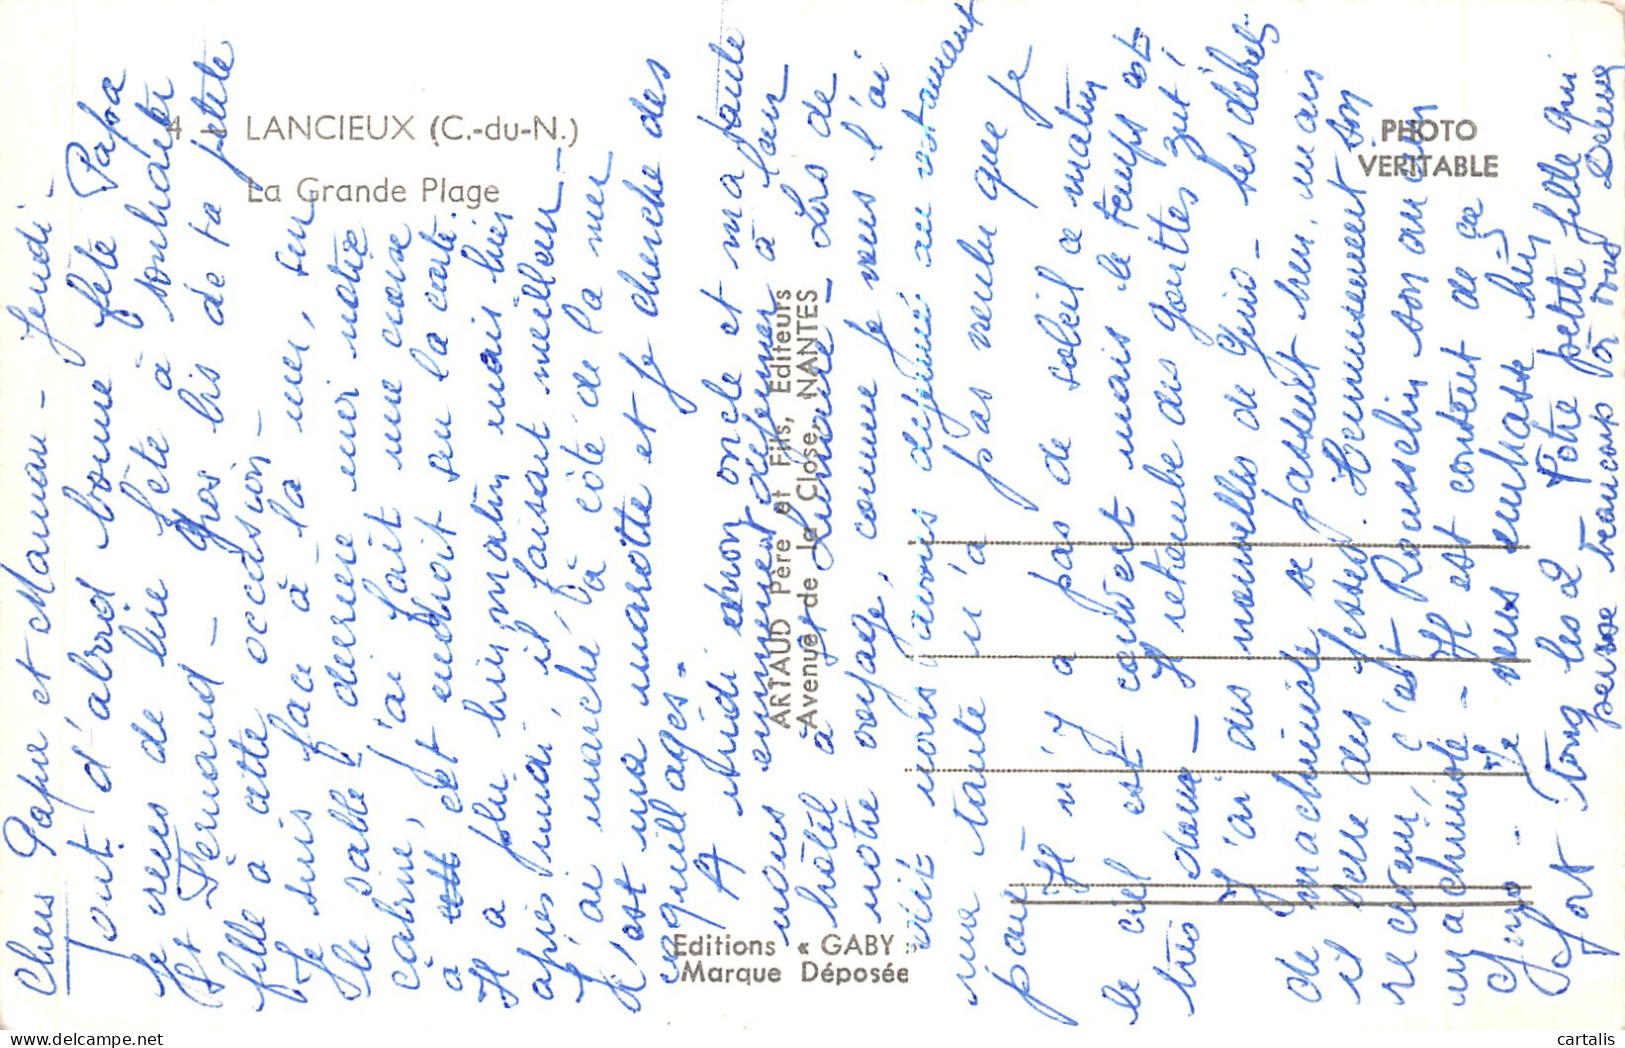 4 - LANCIEUX (C.-du-N.)
La Grande Plage
PHOTO
VERITABLE
ARTAUD Père et Fils, Editeurs
Avenue de la Close, NANTES
Editions « GABY »
Marque Déposée
Chers Papa et Maman - Jeudi -
Tout d'abord bonne fête Papa
Je viens de lire fête à souhaiter
St Fernand - Gros bis de ta petite
fille à cette occasion -
Je suis face à la mer, sur
le sable derrière moi notre
cabine, j'ai fait une croix
à cet endroit sur la carte.
Il a plu hier matin mais hier
après midi, il faisait meilleur -
J'ai marché à côté de la mer
c'est ma marotte et je cherche des
coquillages.
A midi mon oncle et ma tante
nous emmènent déjeuner à leur
hôtel à - Lors de
notre voyage, comme je vous l'ai
dit nous avons déjeuné au restaurant
ma tante n'a pas voulu que je
paie
Il n'y a pas de soleil ce matin
le ciel est couvert mais le temps est
très doux - Il retombe des gouttes zut !
J'ai des nouvelles de Gino - Ses débuts
de machiniste se passent bien, mais
il serre des fesses. Heureusement son
receveur, c'est Rousselin son ancien
machiniste - Il est content de ça
Gino - Je vous embrasse bien
fort tous les 2 - Votre petite fille qui
pense beaucoup à vous Denise
cartalis